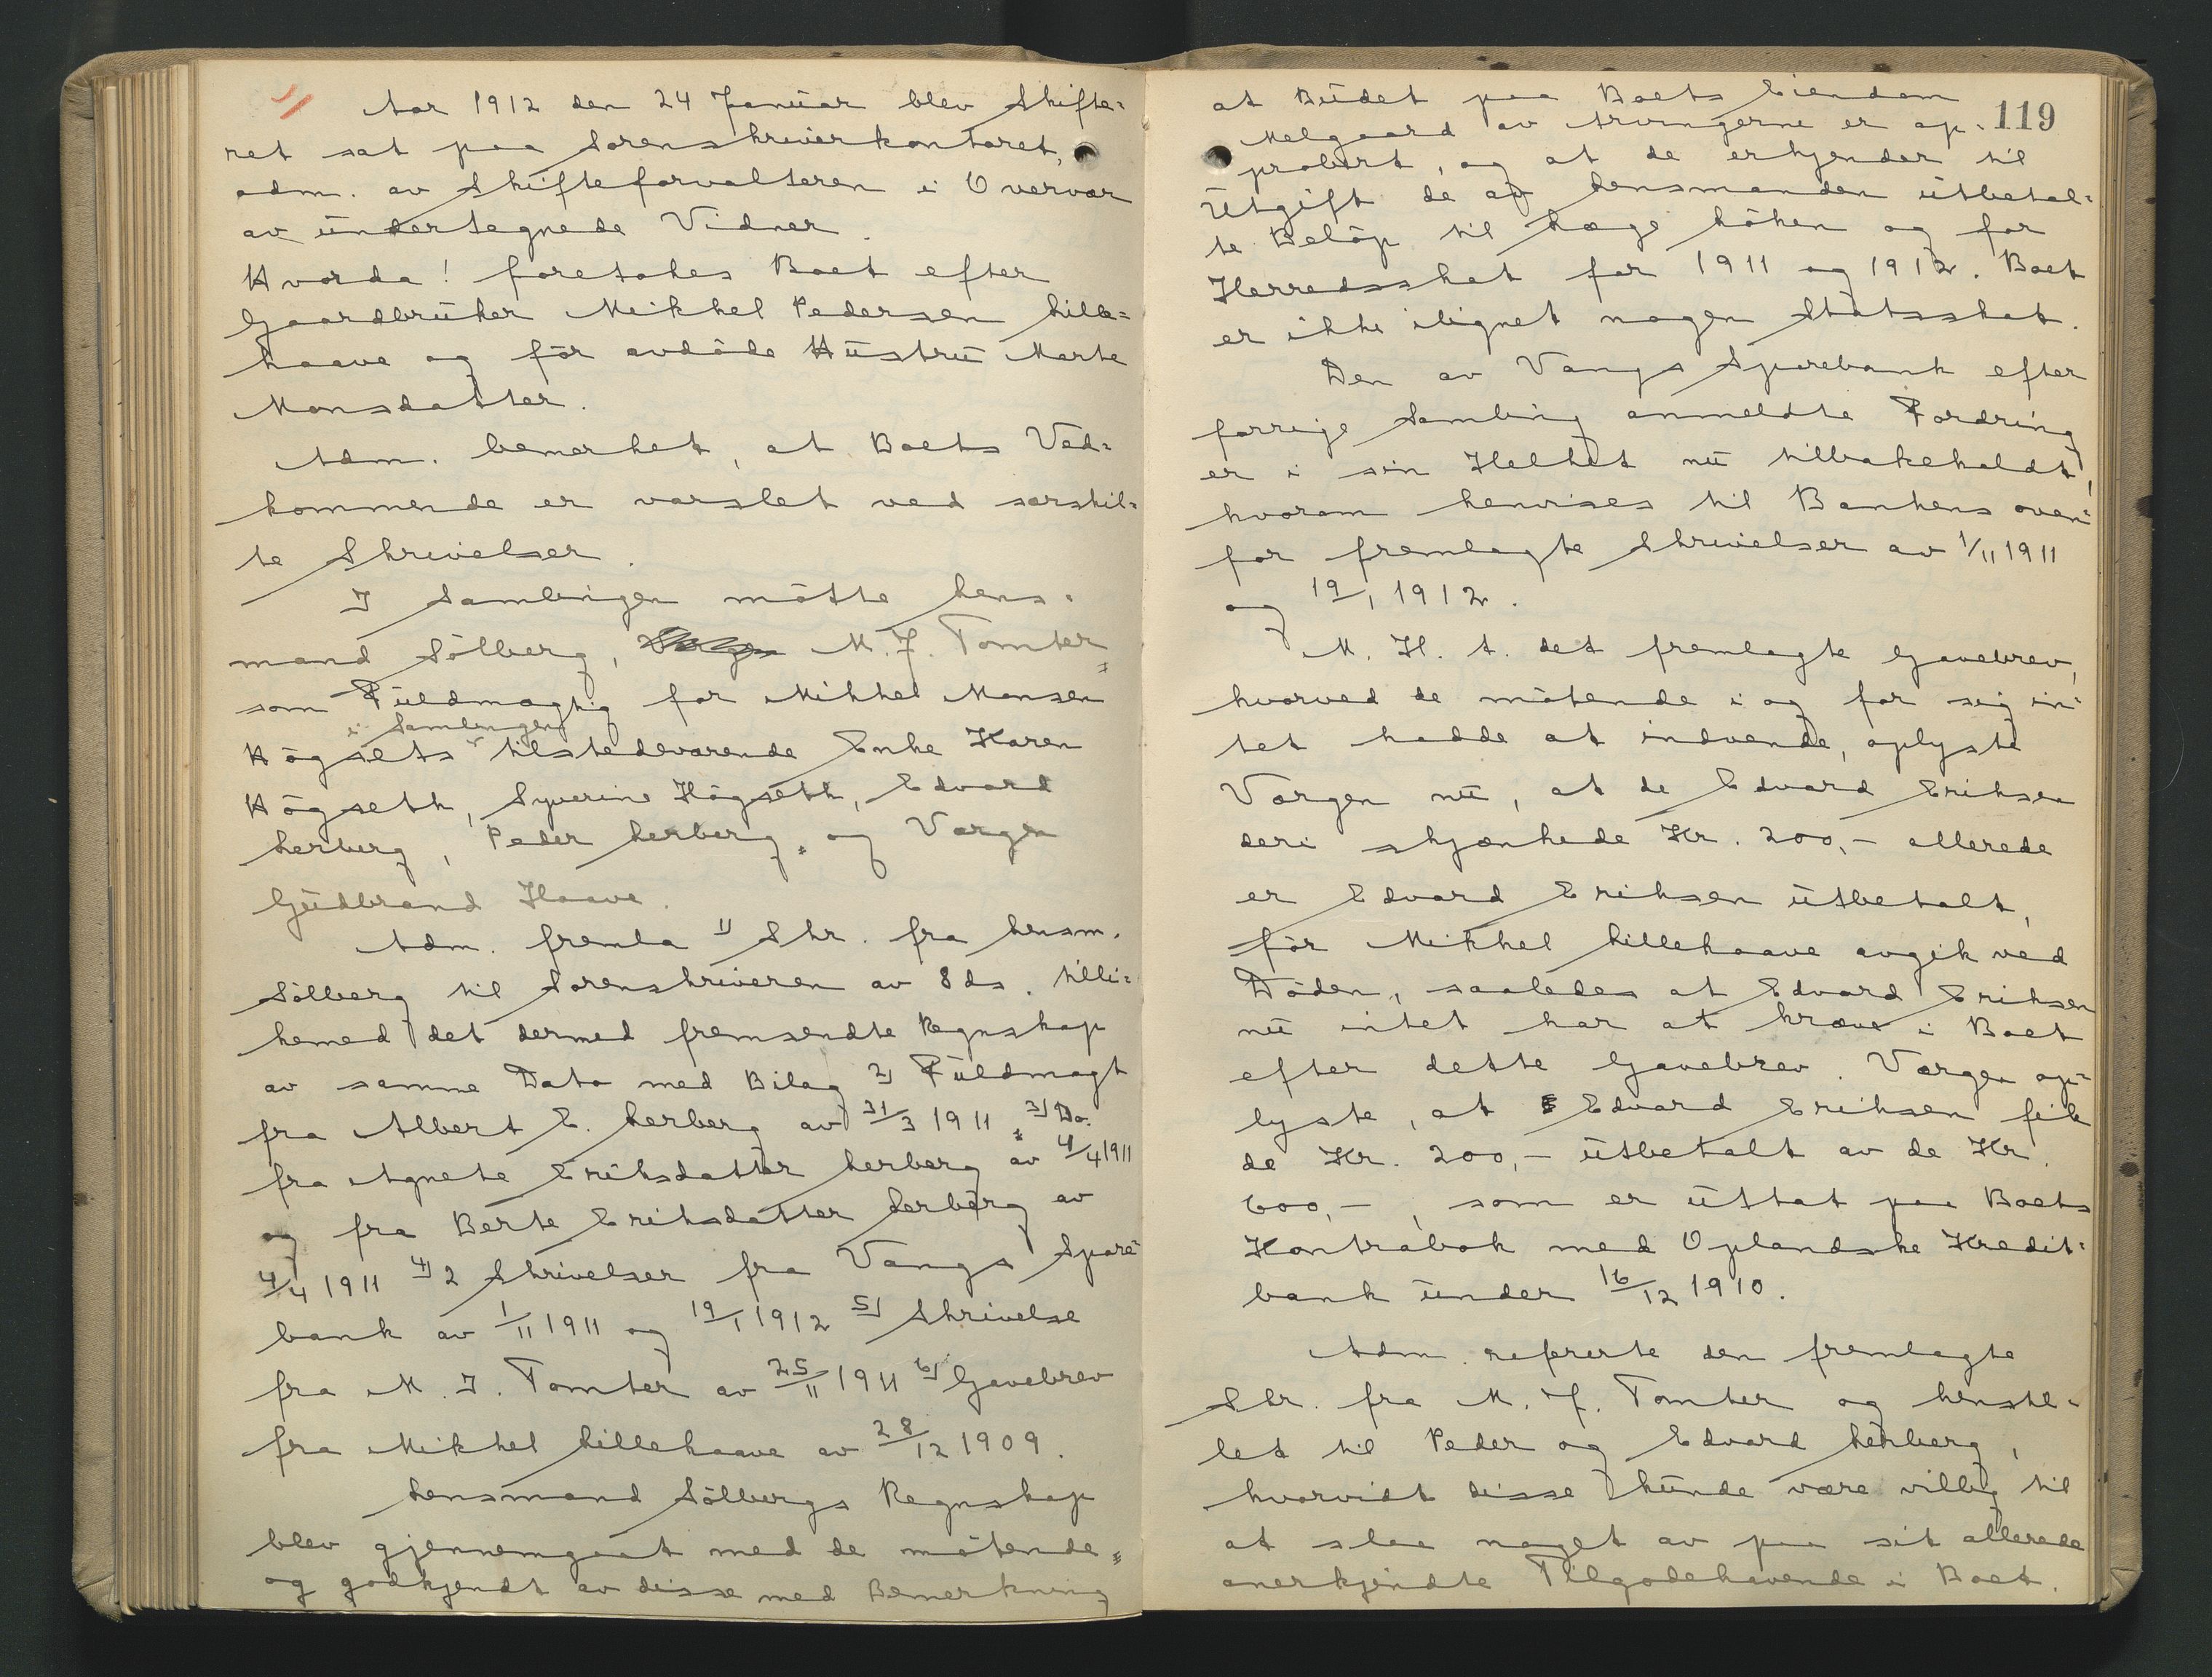 Aar 1912 den 24 Januar blev Skifte=
ret sat paa Sorenskriverkontoret,
adm. av Skifteforvalteren i Overvær
av undertegnede Vidner.
Hvorda! foretokes Boet efter
Gaardbruker Mikkel Pedersen Lille=
haave og før avdøde Hustru Marte
Monsdatter.
Adm. bemerket, at Boets Ved=
kommende er varslet ved særskil=
te Skrivelser.
I Samlingen møtte Lens=
mand Sølberg, M. J. Tomter
som Fuldmægtig for Mikkel Monsen
i Samlingen
Høgsets tilstedeværende Enke Karen
Høgseth, Syverine Høgseth, Edvard
Lerberg, Peder Lerberg og Værgen
Gudbrand Haave.
Adm. fremla 1) Skr. fra Lensm.
Sølberg til Sorenskriveren av 8 ds. tilli=
kemed det dermed fremsendte Regnskap
av samme Dato med Bilag 2) Fuldmagt
fra Albert E. Lerberg av 31/3 1911, 3) Do.
fra Agnete Eriksdatter Lerberg av 4/4 1911
og fra Berte Eriksdatter Lerberg av
4/4 1911 4) 2 Skrivelser fra Vangs Spare=
bank av 1/11 1911 og 19/1 1912 5) Skrivelse
fra M. J. Tomter av 25/11 1911 6) Gavebrev
fra Mikkel Lillehaave av 28/12 1909.
Lensmand Sølbergs Regnskap
blev gjennemgaat med de møtende
og godkjendt av disse med Bemerkning
119
at Budet paa Boets Eiendom
Melgaard av Arvingerne er ap=
probert, og at de erkjender til
Utgift de av Lensmanden utbetal=
te Beløp til Læge Løken og for
Herredsskat for 1911 og 1912. Boet
er ikke ilignet nogen Statsskat.
Den av Vangs Sparebank efter
forrige Samling anmeldte Fordring
er i sin Helhet nu tilbakeholdt,
hvorom henvises til Bankens oven=
for fremlagte Skrivelser av 1/11 1911
og 19/1 1912.
M. H. t. det fremlagte Gavebrev,
hvorved de møtende i og for sig in=
tet hadde at indvende, oplyste
Værgen nu, at de Edvard Eriksen
deri skjænkede Kr. 200,- allerede
er Edvard Eriksen utbetalt,
før Mikkel Lillehaave avgik ved
Døden, saaledes at Edvard Eriksen
nu intet har at kræve i Boet
efter dette Gavebrev. Værgen op=
lyste, at Edvard Eriksen fik
de Kr. 200,- utbetalt av de Kr.
600,-, som er uttat paa Boets
Kontrabok med Oplandske Kredit=
bank under 16/12 1910.
Adm. refererte den fremlagte
Skr. fra M. J. Tomter og henstil=
let til Peder og Edvard Lerberg,
hvorvidt disse kunde være villig til
at slaa noget av paa sit allerede
anerkjendte Tilgodehavende i Boet.